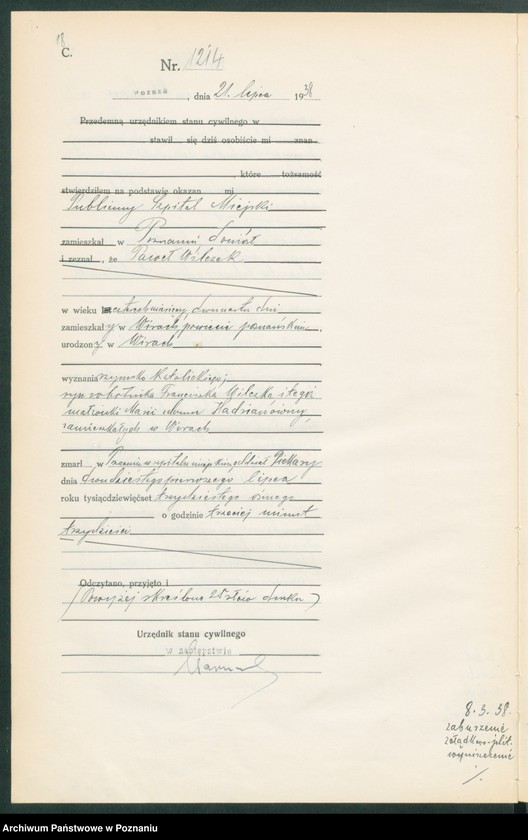 18
C.
Nr. 1214
Poznań, dnia 21. lipca 1938
Przedemną urzędnikiem stanu cywilnego w
stawił się dziś osobiście mi znan
, które tożsamość
stwierdziłem na podstawie okazan mi
Publiczny Szpital Miejski
zamieszkał w Poznaniu doniósł
i zeznał, że Paweł Wilczek
w wieku czterech miesięcy, dwunastu dni
zamieszkały w Wirach powiecie poznańskim,
urodzony w Wirach
wyznania rzymsko katolickiego,
syn robotnika Franciszka Wilczka i tegoż
małżonki Marii z domu Kadzianówny,
zamieszkałych w Wirach
zmarł w Poznaniu w szpitalu miejskim, oddział Piekary
dnia dwudziestego pierwszego lipca
roku tysiącdziewięćset trzydziestego ósmego
o godzinie trzeciej minut
trzydzieści
Odczytano, przyjęto i
(Powyżej skreślono 25 słów druku)
Urzędnik stanu cywilnego
w zastępstwie
8. 3. 38.
zaburzenie
żołądkowo-jelit.
wyniszczenie
Archiwum Państwowe w Poznaniu